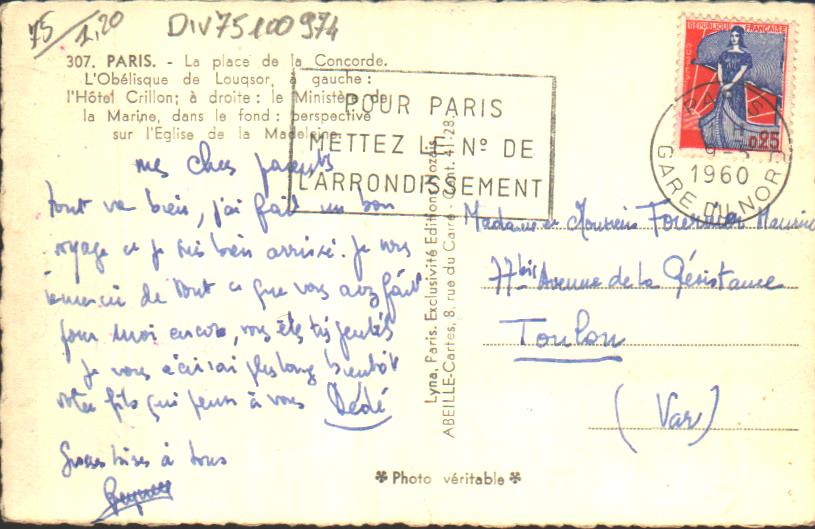 75/1,20
DIV75100974
307. PARIS. - La place de la Concorde.
L'Obélisque de Louqsor, à gauche :
l'Hôtel Crillon; à droite : le Ministère de
la Marine, dans le fond : perspective
sur l'Eglise de la Madeleine.
POUR PARIS
METTEZ LE Nº DE
L'ARRONDISSEMENT
REPUBLIQUE FRANÇAISE
0,25
PARIS
1960
GARE DU NORD
mes chers parents
tout va bien, j'ai fait un bon
voyage et je suis bien arrivé. Je vous
remercie de tout ce que vous avez fait
pour moi encore, vous êtes très gentils
Je vous écrirai plus long bientôt
votre fils qui pense à vous Dédé
Grosses bises à tous
Lyna, Paris. Exclusivité Editions
ABEILLE-Cartes, 8, rue du Caire
Madame et Monsieur Fournier Maurice
77bis Avenue de la Résistance
Toulon
(Var)
Photo véritable